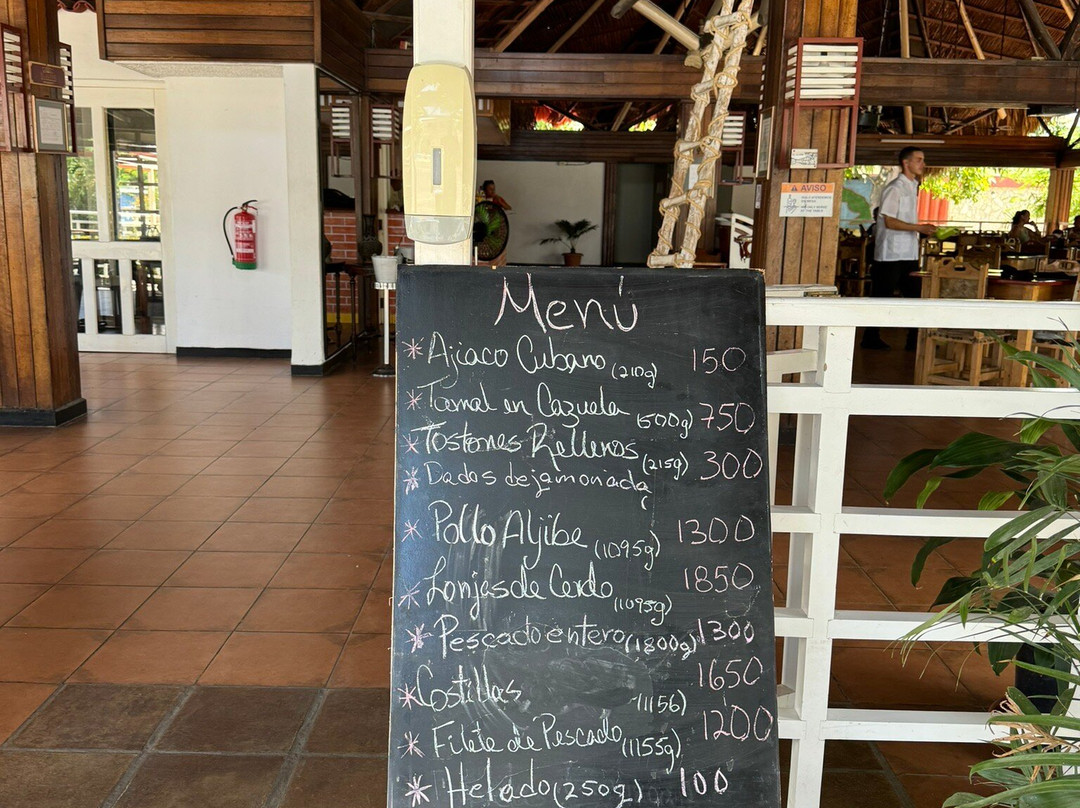 AVISO
Menú
* Ajiaco Cubano (210g) 150
* Tamal en Cazuela (500g) 750
* Tostones Rellenos (215g) 300
* Dados de jamonada
* Pollo Aljibe (1095g) 1300
* Lonjas de Cerdo (1095g) 1850
* Pescado entero (1800g) 1300
* Costillas (1156) 1650
* Filete de Pescado (1155g) 1200
* Helado (250g) 100